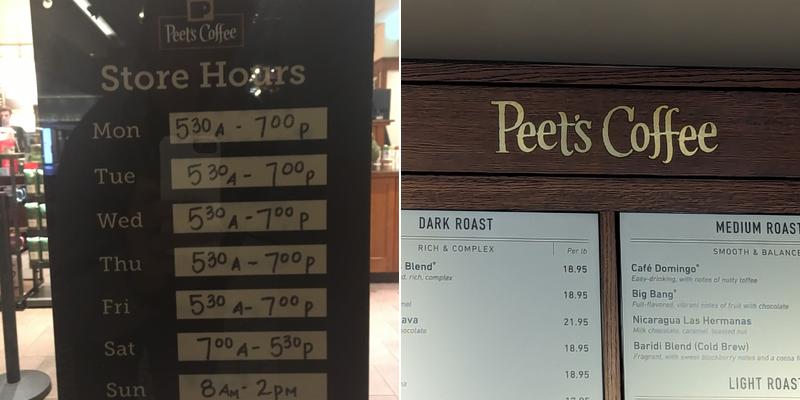 Peet's Coffee
Store Hours
Mon 530A - 700P
Tue 530A - 700P
Wed 530A - 700P
Thu 530A - 700P
Fri 530A - 700P
Sat 700A - 530P
Sun 8AM - 2PM
Peet's Coffee
DARK ROAST
RICH & COMPLEX Per lb
Blend* 18.95
d, rich, complex
18.95
21.95
18.95
18.95
MEDIUM ROAST
SMOOTH & BALANCE
Café Domingo*
Easy-drinking, with notes of nutty toffee
Big Bang*
Full-flavored, vibrant notes of fruit with chocolate
Nicaragua Las Hermanas
Milk chocolate, caramel, toasted nut
Baridi Blend (Cold Brew)
Fragrant, with sweet blackberry notes and a cocoa
LIGHT ROAST